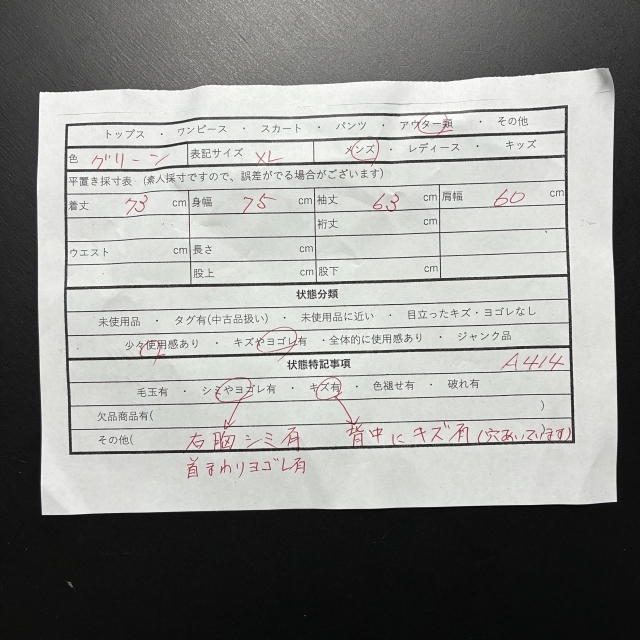 トップス ・ ワンピース ・ スカート ・ パンツ ・ アウター類 ・ その他
色 グリーン 表記サイズ XL メンズ ・ レディース ・ キッズ
平置き採寸表 (素人採寸ですので、誤差がでる場合がございます)
着丈 73 cm 身幅 75 cm 袖丈 63 cm 肩幅 60 cm
cm 裄丈 cm
ウエスト cm 長さ cm
股上 cm 股下 cm
状態分類
未使用品 ・ タグ有(中古品扱い) ・ 未使用品に近い ・ 目立ったキズ・ヨゴレなし
少々使用感あり ・ キズやヨゴレ有 ・全体的に使用感あり ・ ジャンク品
状態特記事項 A414
毛玉有 ・ シミやヨゴレ有 ・ キズ有 ・ 色褪せ有 ・ 破れ有
欠品商品有( )
その他( 右胸シミ有 背中にキズ有(穴あいてます)
首まわりヨゴレ有